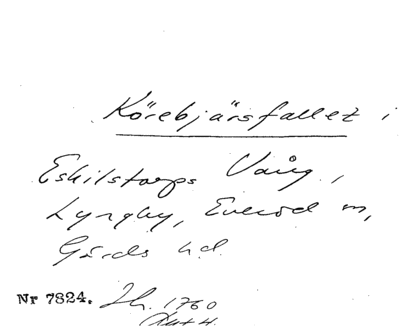 Körebjärsfallet i
Eskilstorps Vång,
Lyngby, Everöd m,
Gärds hd.
Nr 7824. Jh. 1760